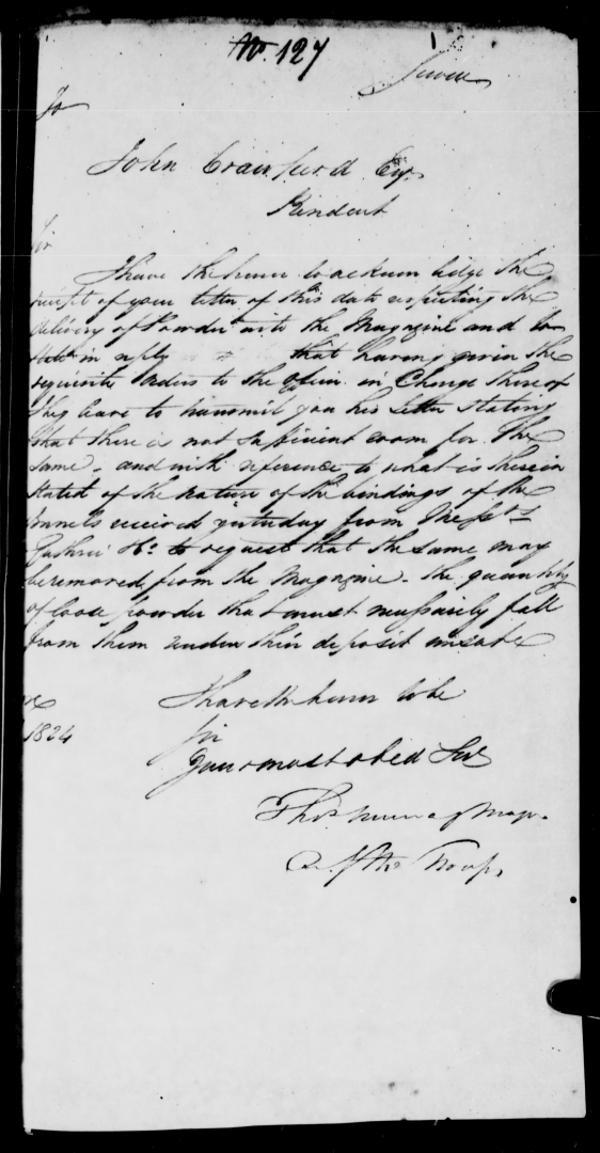 No. 127
To
John Crawfurd Esq.
Resident
Sir
I have the honor to acknowledge the
receipt of your letter of this date respecting the
delivery of Powder into the Magazine and to
state in reply that having given the
requisite orders to the Officer in Charge thereof
I beg leave to transmit you his letter stating
that there is not sufficient room for the
same. and with reference to what is therein
stated of the nature of the bindings of the
Barrels received yesterday from Messrs
Guthrie & Co to request that the same may
be removed from the Magazine - the quantity
of loose powder that must necessarily fall
from them renders their deposit unsafe
I have the honor to be
1824
Sir
Your most obed Ser
Thos Murray Major
Troops